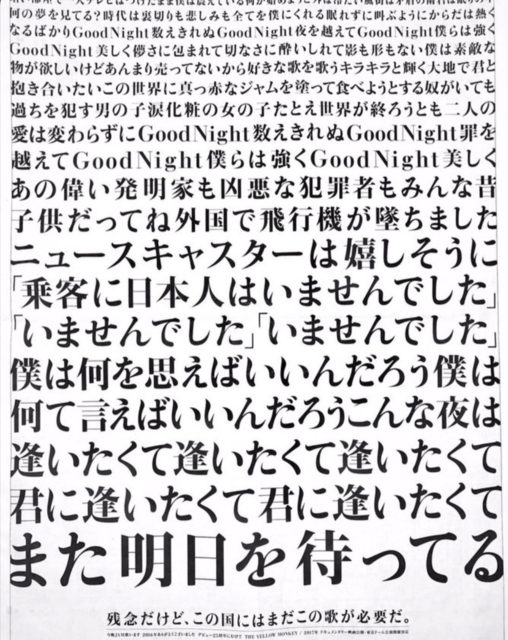 何の夢を見てる?時代は裏切りも悲しみも全てを僕にくれる眠れずに叫ぶようにからだは熱く
なるばかりGoodNight数えきれぬGoodNight夜を越えてGoodNight僕らは強く
GoodNight美しく儚さに包まれて切なさに酔いしれて影も形もない僕は素敵な
物が欲しいけどあんまり売ってないから好きな歌を歌うキラキラと輝く大地で君と
抱き合いたいこの世界に真っ赤なジャムを塗って食べようとする奴がいても
過ちを犯す男の子涙化粧の女の子たとえ世界が終ろうとも二人の
愛は変わらずにGoodNight数えきれぬGoodNight罪を
越えてGoodNight僕らは強くGoodNight美しく
あの偉い発明家も凶悪な犯罪者もみんな昔
子供だってね外国で飛行機が墜ちました
ニュースキャスターは嬉しそうに
「乗客に日本人はいませんでした」
「いませんでした」「いませんでした」
僕は何を思えばいいんだろう僕は
何て言えばいいんだろうこんな夜は
逢いたくて逢いたくて逢いたくて
君に逢いたくて君に逢いたくて
また明日を待ってる
残念だけど、この国にはまだこの歌が必要だ。
THE YELLOW MONKEY